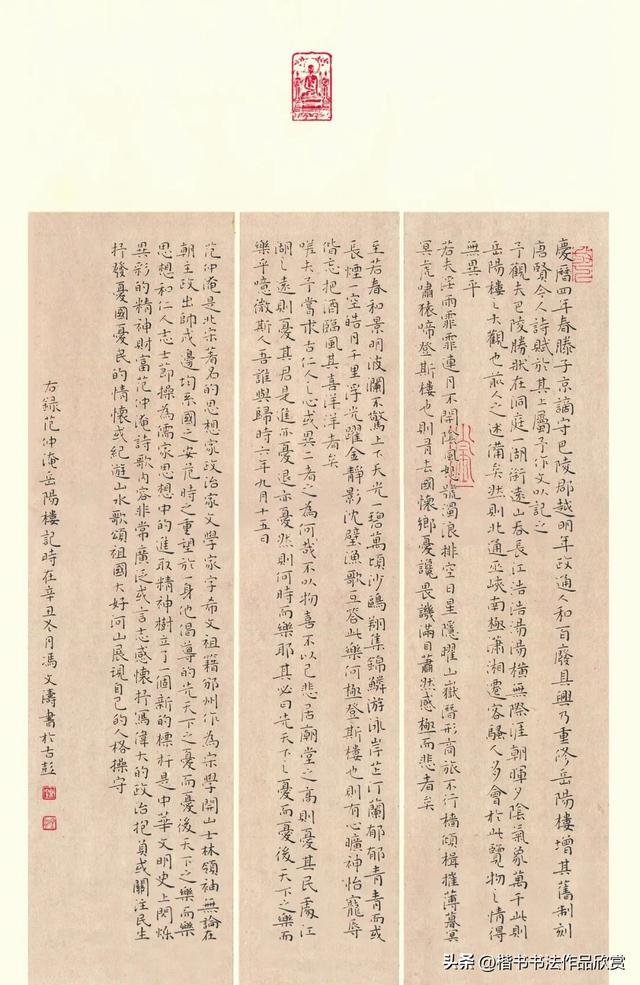 慶曆四年春滕子京謫守巴陵郡越明年政通人和百廢具興乃重修岳陽樓增其舊制刻
唐賢今人詩賦於其上屬予作文以記之
予觀夫巴陵勝狀在洞庭一湖銜遠山吞長江浩浩湯湯橫無際涯朝暉夕陰氣象萬千此則
岳陽樓之大觀也前人之述備矣然則北通巫峽南極瀟湘遷客騷人多會於此覽物之情得
無異乎
若夫淫雨霏霏連月不開陰風怒號濁浪排空日星隱曜山嶽潛形商旅不行檣傾楫摧薄暮冥
冥虎嘯猿啼登斯樓也則有去國懷鄉憂讒畏譏滿目蕭然感極而悲者矣
至若春和景明波瀾不驚上下天光一碧萬頃沙鷗翔集錦鱗游泳岸芷汀蘭郁郁青青而或
長煙一空皓月千里浮光躍金靜影沈璧漁歌互答此樂何極登斯樓也則有心曠神怡寵辱
偕忘把酒臨風其喜洋洋者矣
嗟夫予嘗求古仁人之心或異二者之為何哉不以物喜不以己悲居廟堂之高則憂其民處江
湖之遠則憂其君是進亦憂退亦憂然則何時而樂耶其必曰先天下之憂而憂後天下之樂而
樂乎噫微斯人吾誰與歸時六年九月十五日
范仲淹是北宋著名的思想家政治家文學家字希文祖籍邠州作為宋學開山士林領袖無論在
朝主政出帥戍邊均系國之安危時之重望於一身他倡導的先天下之憂而憂後天下之樂而樂
思想和仁人志士節操為儒家思想中的進取精神樹立了個新的標杆是中華文明史上閃爍
異彩的精神財富范仲淹詩歌內容非常廣泛或言志感懷抒寫偉大的政治抱負或關注民生
抒發憂國憂民的情懷或紀遊山水歌頌祖國大好河山展現自己的人格操守
右錄范仲淹岳陽樓記時在辛丑冬月馮文濤書於古彭
头条 @楷书书法作品欣赏